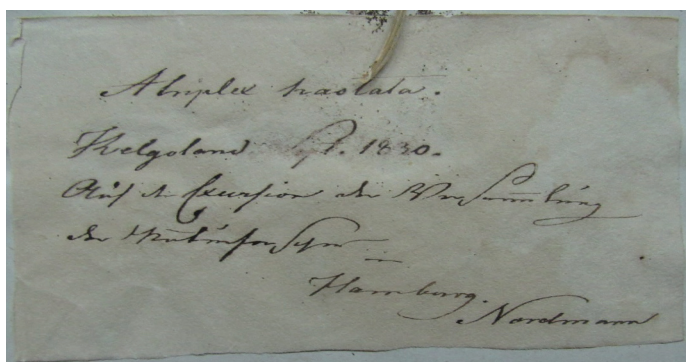 Atriplex hastata.
Helgoland Sept. 1830.
Auf d. Excursion der Versammlung
der Naturforscher
in
Hamburg.
Nordmann